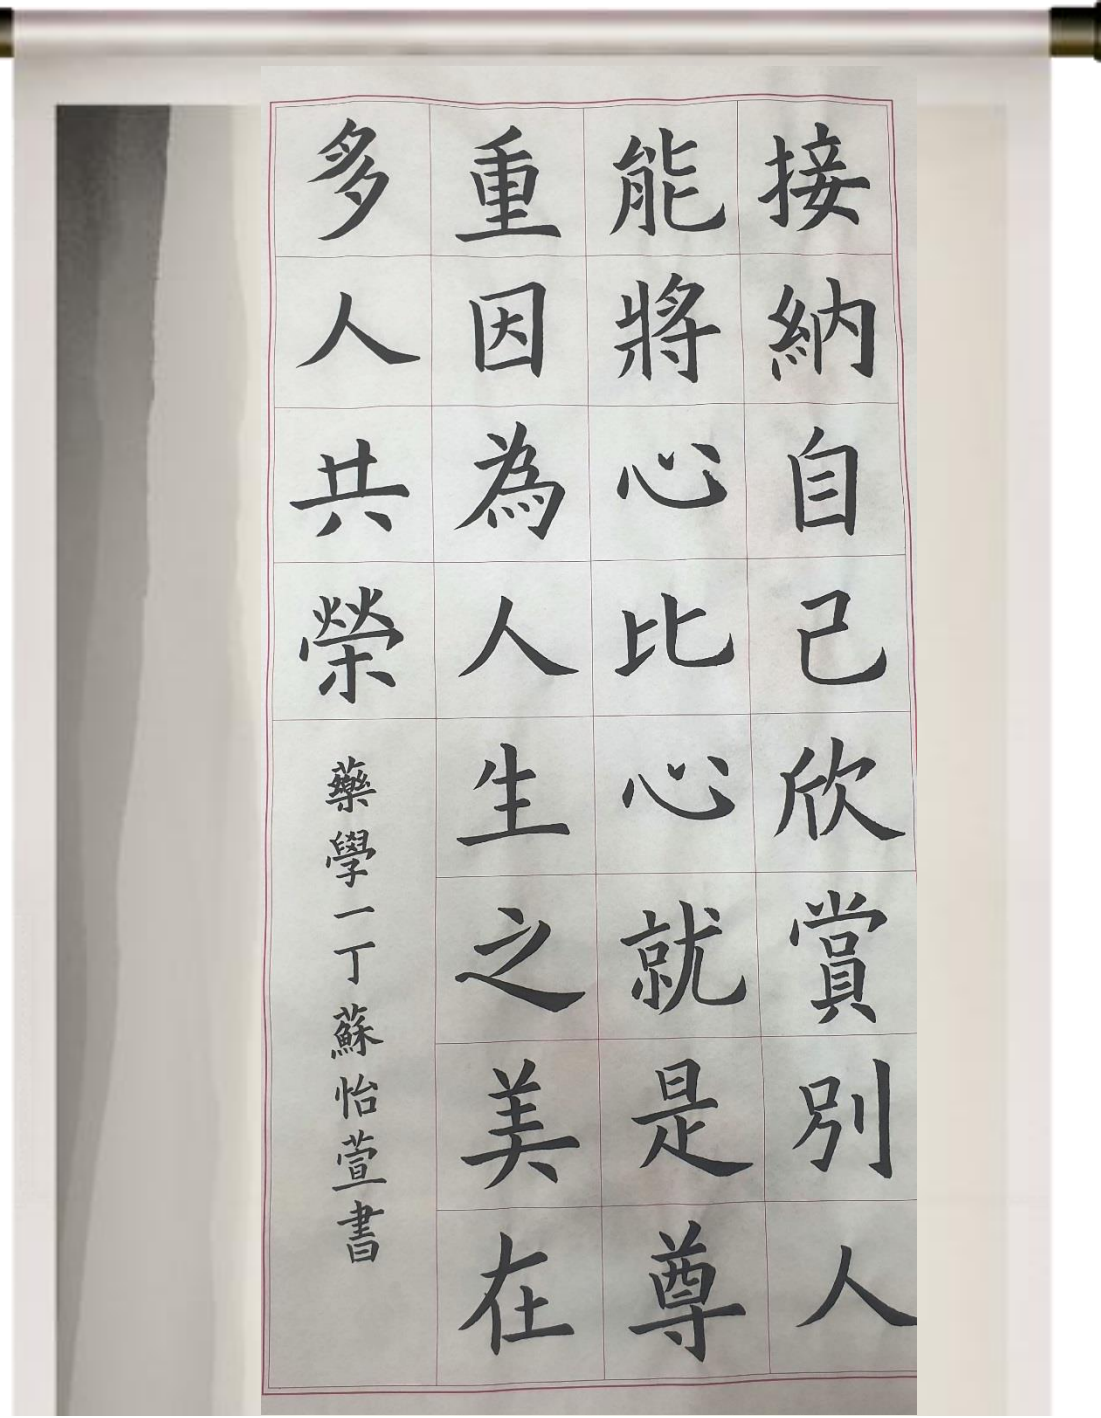 接納自己欣賞別人
能將心比心就是尊
重因為人生之美在
多人共榮
藥學一丁蘇怡萱書